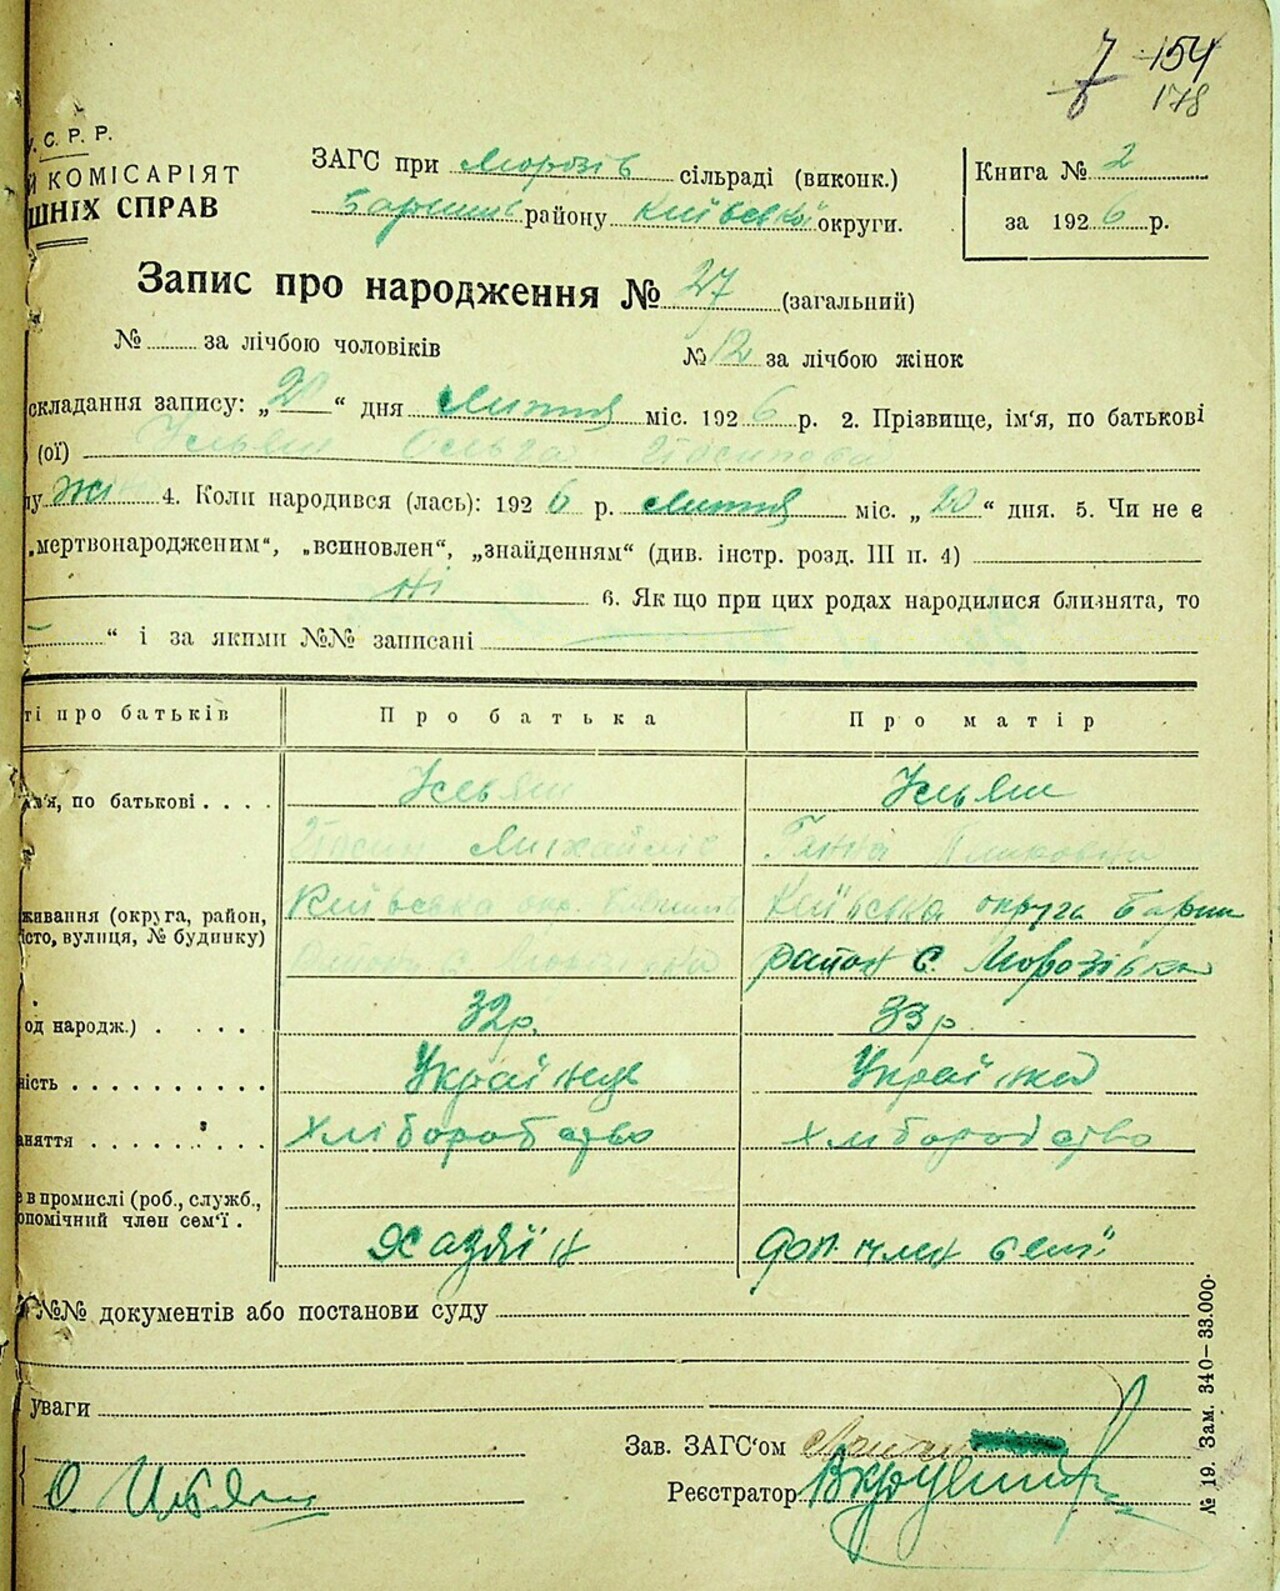 7 154
178
У.С.Р.Р.
Й КОМІСАРІЯТ
ШНІХ СПРАВ
ЗАГС при Морозів сільраді (виконк.)
Баришів району Київської округи.
Книга № 2
за 1926 р.
Запис про народження № 27 (загальний)
№ за лічбою чоловіків № 12 за лічбою жінок
складання запису: „20“ дня Лютня міс. 1926 р. 2. Прізвище, ім'я, по батькові
(ої) Ільяш Ольга Йосипова
лу жі 4. Коли народився (лась): 1926 р. Лютня міс. „20“ дня. 5. Чи не є
„мертвонародженим“, „всиновлен“, „знайденням“ (див. інстр. розд. III п. 4)
Ні 6. Як що при цих родах народилися близнята, то
“ і за якими №№ записані
ті про батьків Про батька Про матір
м'я, по батькові . . . . Ільяш Ільяш
Йосип Михайлів Ганна
живання (округа, район, Київська окр. Баришів Київська округа Бариш
істо, вулиця, № будинку) район с. Морозівка район с. Морозівка
од народж.) . . . . 32 р. 33 р.
ність . . . . . . . . . . Українець Українка
аняття . . . . . . . . Хліборобство Хліборобство
е в промислі (роб., служб.,
опомічний член сем'ї . Хазяїн доп. член сем'ї
№№ документів або постанови суду
уваги
Зав. ЗАГС'ом
О. Ильяш Реєстратор
№ 19. Зам. 340—33.000.